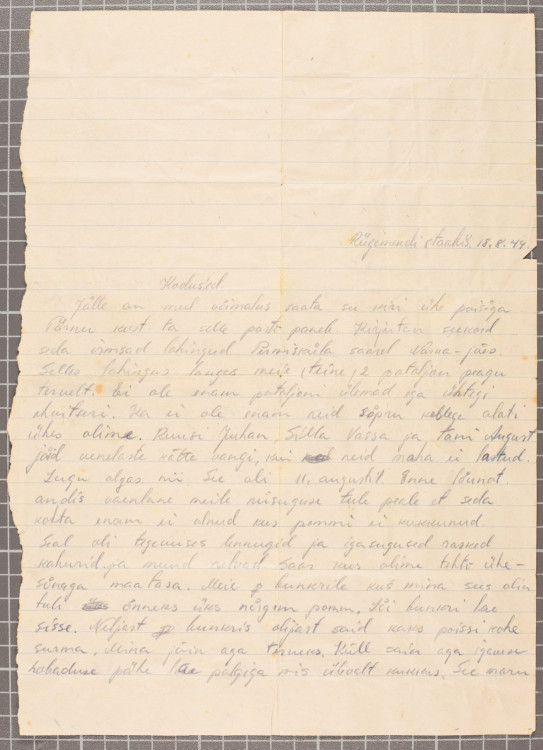 Rügemendi staabis. 18.8.44.
Kodused.
Jälle on mul võimalus saata su kiri ühe poisiga
Pärnu kust ta selle posti paneb. Kirjutan
seda lahingud saarel Narva-jões.
Selles lahingus langes meie (teine) 2 pataljon peagu
tervelt. Ei ole enam pataljoni ülemad ega ühtegi
ohvitseri. Ka ei ole enam neid sõpru kellega alati
ühes olime. Ruusi Juhan, Silla Vassa ja Tomi August
jäid venelaste kätte vangi, kui neid maha ei lastud.
Lugu algas nii See oli 11. augustil. Enne lõunat
andis vaenlane meile niisuguse tule peale et seda
kohta enam ei olnud kus pommi ei kukkunud.
Seal oli tegevuses lennugid ja igasugused rasked
kahurid ja muud relvad Saar kus olime tehti ühe-
sõnaga maatasa. Meie punkrile kus mina sees olin
tuli õnneks üks nõrgem pomm. Lõi punkri lae
sisse. Neljast punkris olijast said kaks poissi kohe
surma. Mina jäin aga terveks. Küll sain aga igavese
hobaduse pähe lae palgiga mis ülevelt kukkus. See maru